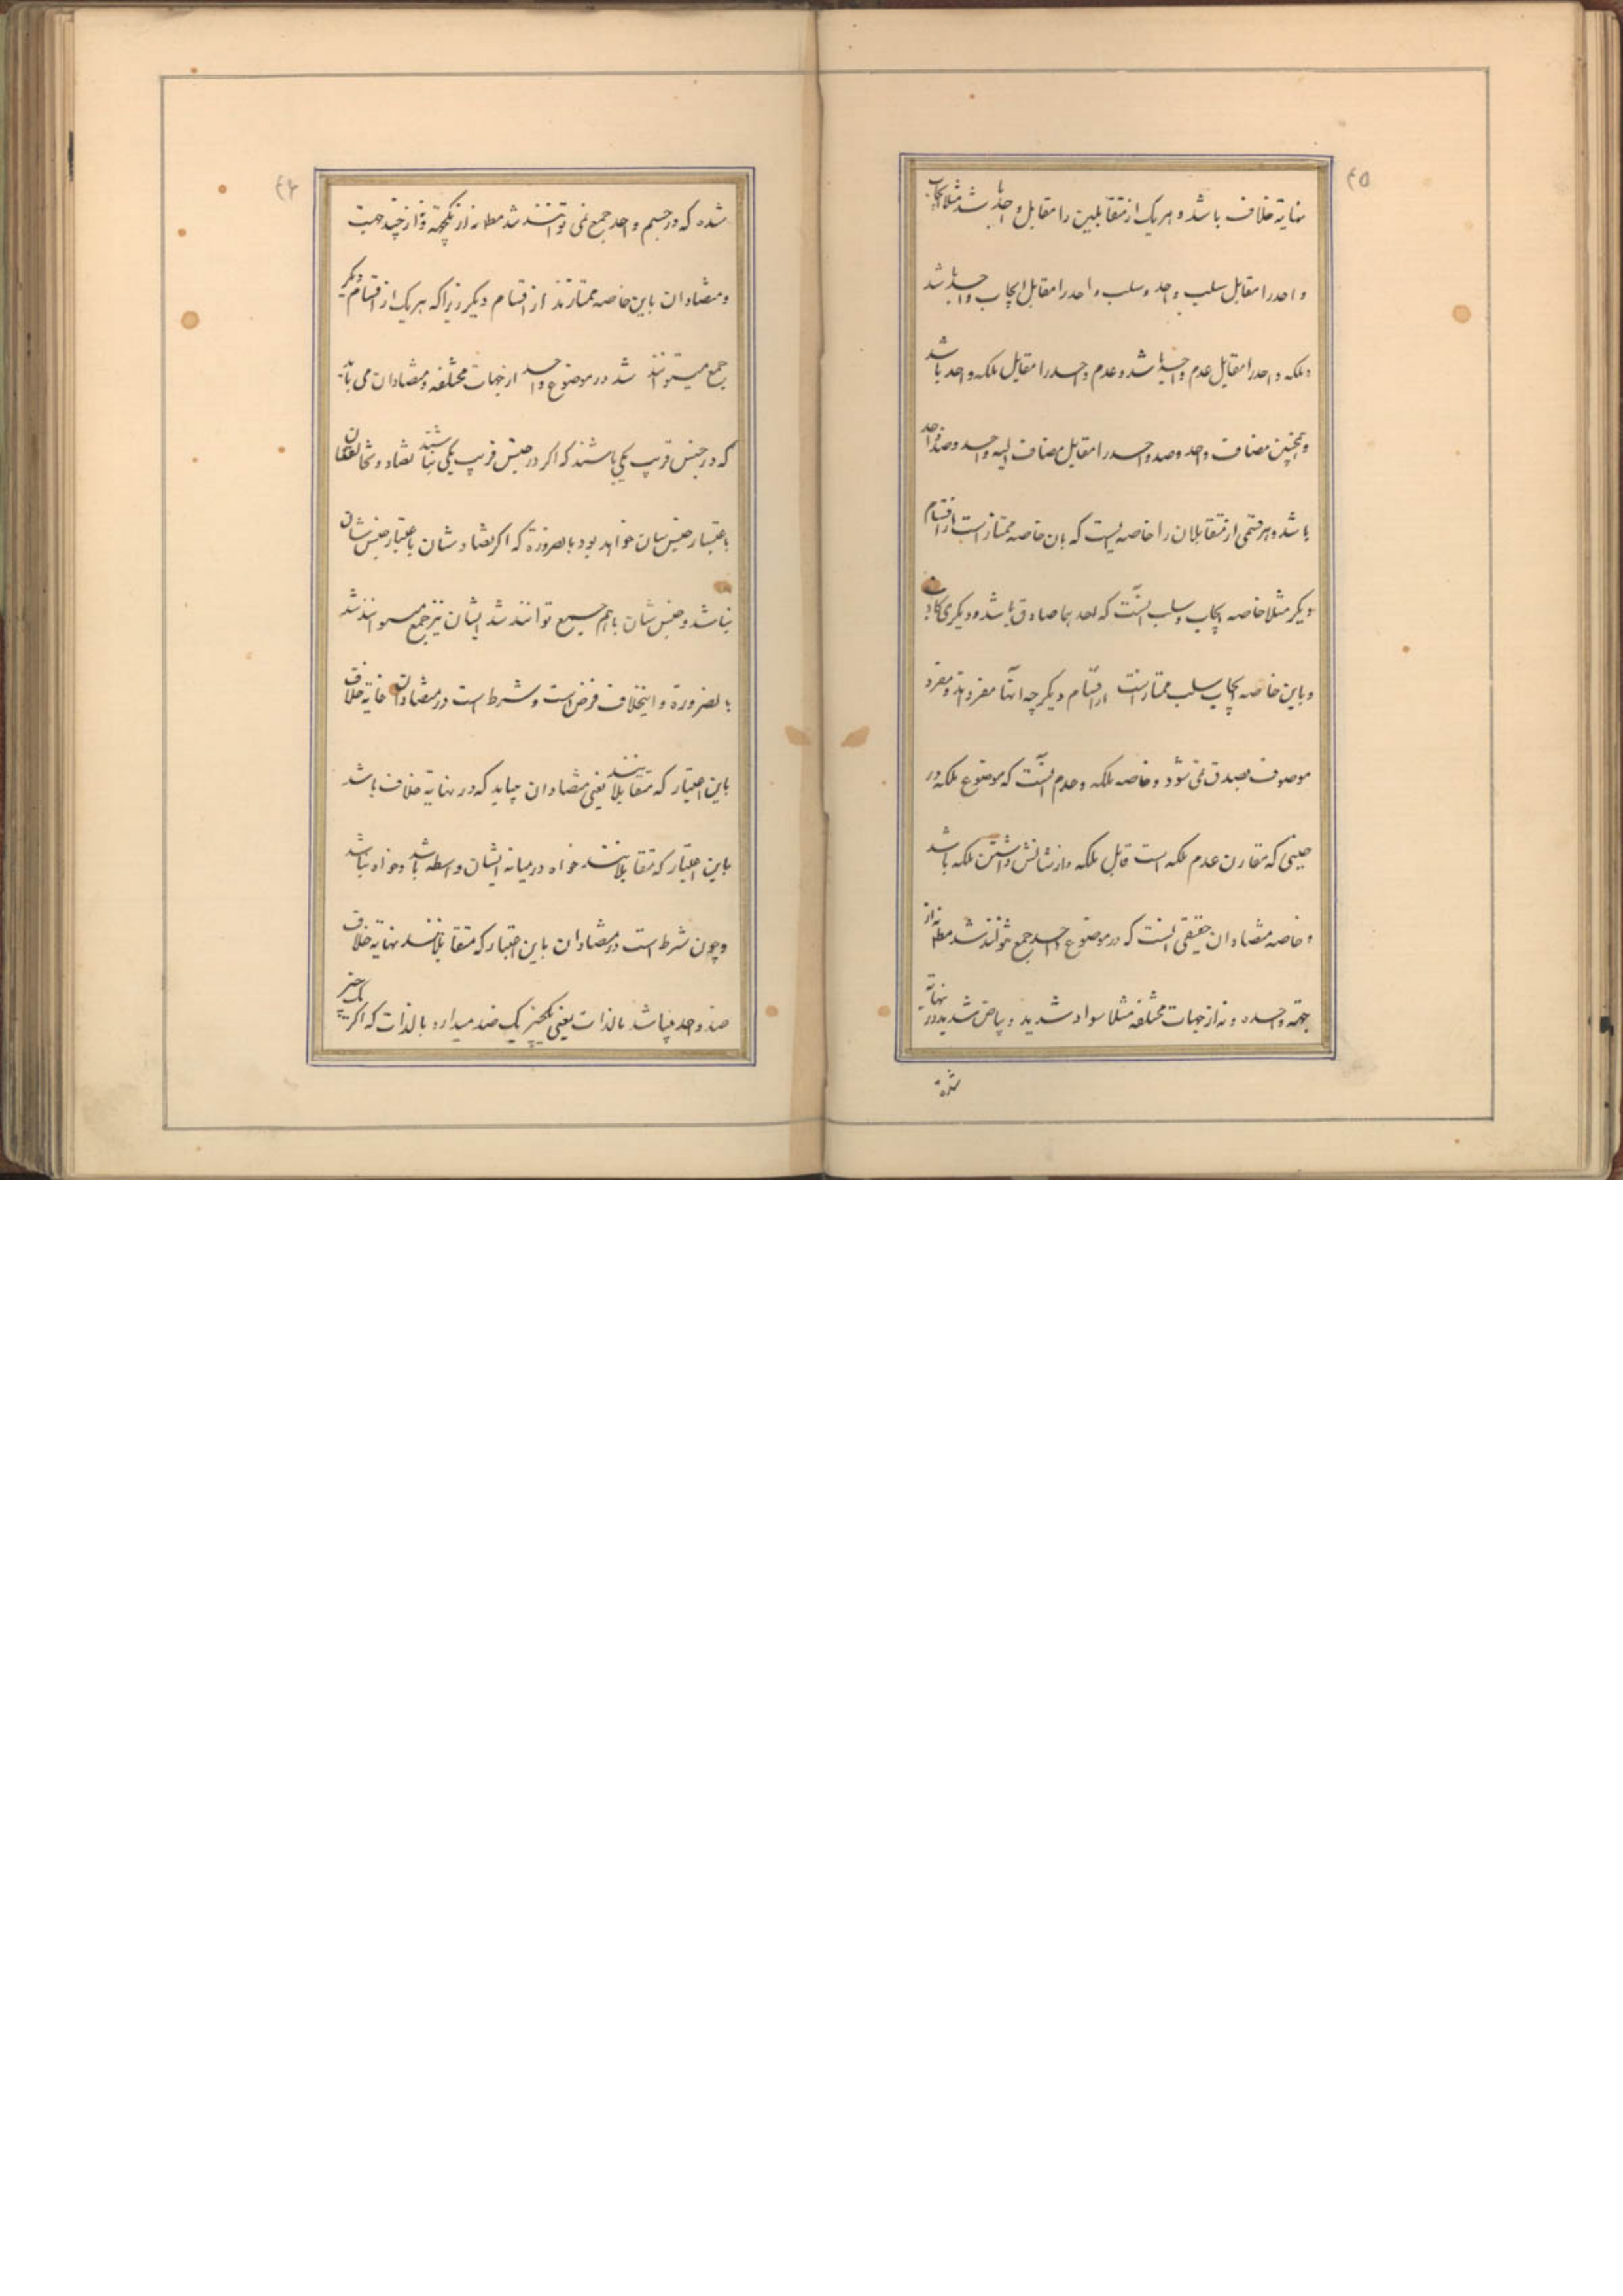 ۴۵
نهایة خلاف باشد و هر یک از متقابلین را مقابل واحد باشد مثلا ایجاب
واحد را مقابل سلب واحد و سلب واحد را مقابل ایجاب واحد باشد
و ملکه واحد را مقابل عدم واحد باشد و عدم واحد را مقابل ملکه واحد باشد
و همچنین مضاف واحد و ضد واحد را مقابل مضاف الیه واحد و ضد واحد
باشد و هر قسمی از متقابلان را خاصه ایست که بان خاصه ممتاز است از اقسام
دیگر مثلا خاصه ایجاب و سلب آنست که احدهما صادق باشد و دیگری کاذب
و باین خاصه ایجاب سلب ممتاز است از اقسام دیگر چه آنها مفردند و مفرد
موصوف بصدق نمی شود و خاصه ملکه و عدم آنست که موضوع ملکه در
حینی که مقارن عدم ملکه است قابل ملکه و از شانش داشتن ملکه باشد
و خاصه متضادان حقیقی آنست که در موضوع واحد جمع نتوانند شد مط نه از
جهة واحده و نه از جهات مختلفه مثلا سواد شدید و بیاض شدید در نهایة
شده
۴۶
شده که در جسم واحد جمع نمی توانند شد مط نه از یکجهة و نه از چند جهت
و متضادان باین خاصه ممتازند از اقسام دیگر زیرا که هر یک از اقسام دیگر
جمع میتوانند شد در موضوع واحد از جهات مختلفه و متضادان می باید
که در جنس قریب یکی باشند که اگر در جنس قریب یکی نباشند تضاد و تخالفشان
باعتبار جنس شان خواهد بود بالضرورة که اگر تضاد شان باعتبار جنس شان
نباشد و جنس شان باهم جمع توانند شد ایشان نیز جمع میتوانند شد
بالضرورة و اینخلاف فرض است و شرط است در متضادان غایة خلاف
باین اعتبار که متقابلانند یعنی متضادان میباید که در نهایة خلاف باشد
باین اعتبار که متقابلانند خواه در میانه ایشان واسطه باشد و خواه نباشد
و چون شرط است در متضادان باین اعتبار که متقابلانند نهایة خلاف
ضد واحد میباشد بالذات یعنی یکچیز یک ضد میدارد بالذات که اگر یک چیز